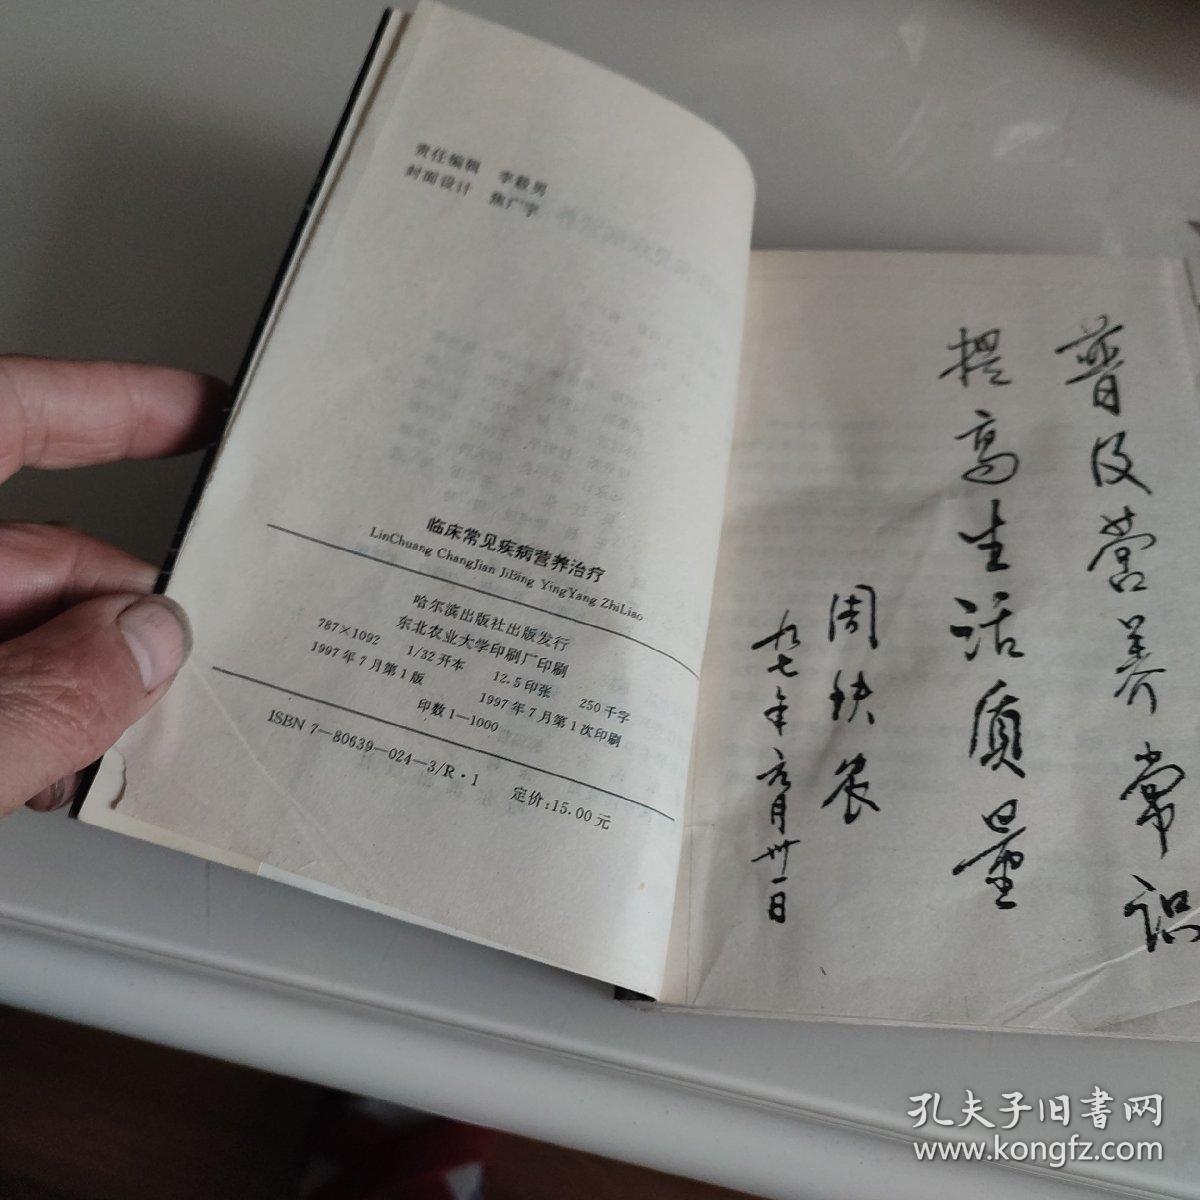 责任编辑 李毅男
封面设计 焦广宇
临床常见疾病营养治疗
LinChuang ChangJian JiBing YingYang ZhiLiao
哈尔滨出版社出版发行
东北农业大学印刷厂印刷
787×1092 1/32开本 12.5印张 250千字
1997年7月第1版 1997年7月第1次印刷
印数1—1000
ISBN 7—80639—024—3/R·1 定价:15.00元
普及营养常识
提高生活质量
周铁农
九七年元月卅一日
孔夫子旧书网
www.kongfz.com